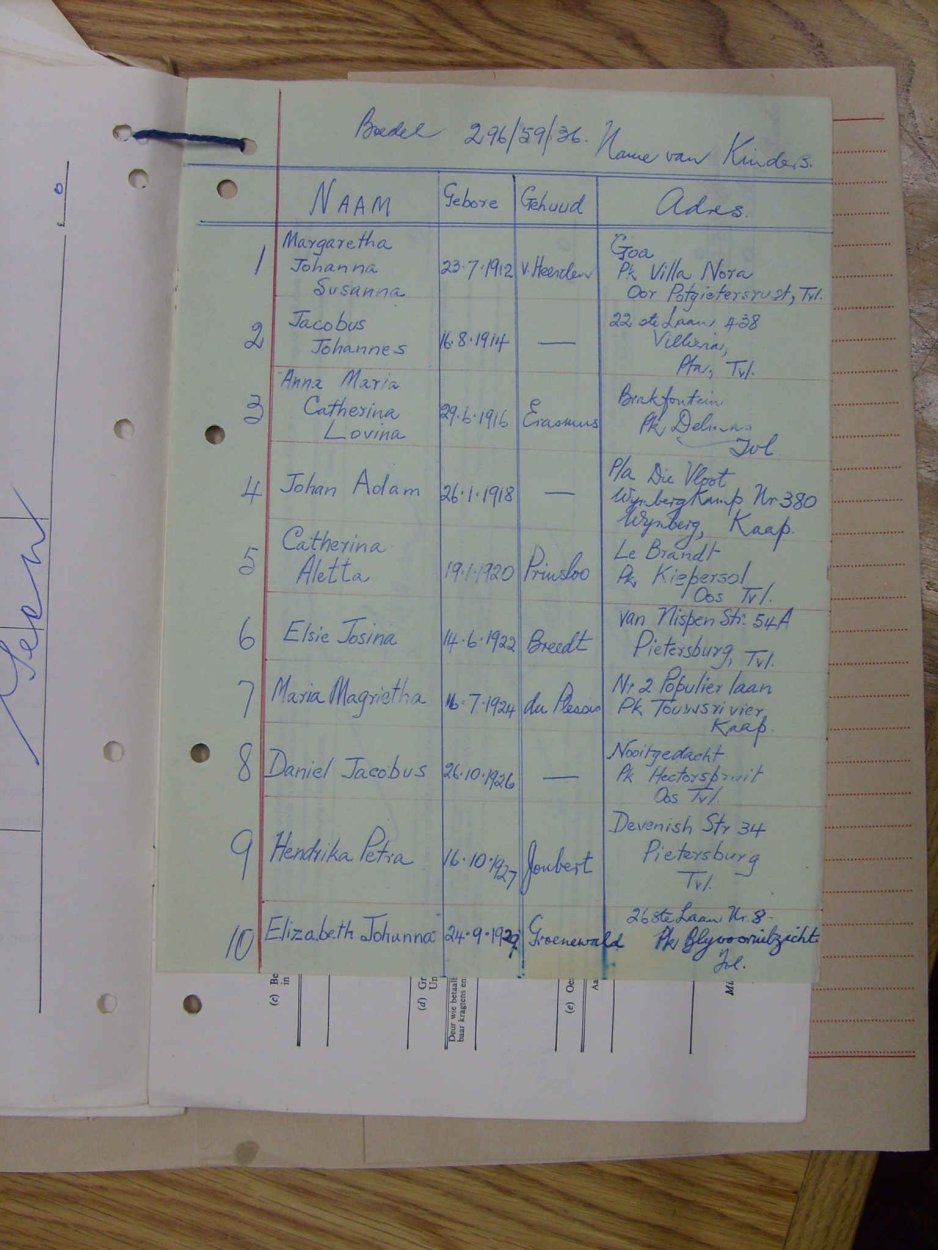 Boedel 296/59/36. Name van Kinders.
NAAM Gebore Gehuud Adres.
1 Margaretha Johanna Susanna 23.7.1912 v. Heerden Goa
Pk Villa Nora
Oor Potgietersrust, Tvl.
2 Jacobus Johannes 16.8.1914 — 22 ste Laan 438
Villieria,
Pta, Tvl.
3 Anna Maria Catherina Lovina 29.6.1916 Erasmus Brakfontein
Pk Delmas
Tvl
4 Johan Adam 26.1.1918 — P/a Die Vloot
Wynberg Kamp Nr 380
Wynberg, Kaap.
5 Catherina Aletta 19.1.1920 Prinsloo Le Brandt
Pk Kiepersol
Oos Tvl.
6 Elsie Josina 14.6.1922 Breedt van Nispen Str. 54A
Pietersburg, Tvl.
7 Maria Magrietha 16.7.1924 du Plessis Nr 2 Populier laan
Pk Touwsrivier
Kaap.
8 Daniel Jacobus 26.10.1926 — Nooitgedacht
Pk Hectorspruit
Oos Tvl.
9 Hendrika Petra 16.10.1927 Joubert Devenish Str 34
Pietersburg
Tvl.
10 Elizabeth Johanna 24.9.1929 Groenewald 26ste Laan Nr. 8
Pk Blyvooruitzicht
Tvl.
(c) Be
in
(d) Gr
Un
Deur wie betaal
baar kragtens en
(e) Oe
Aa